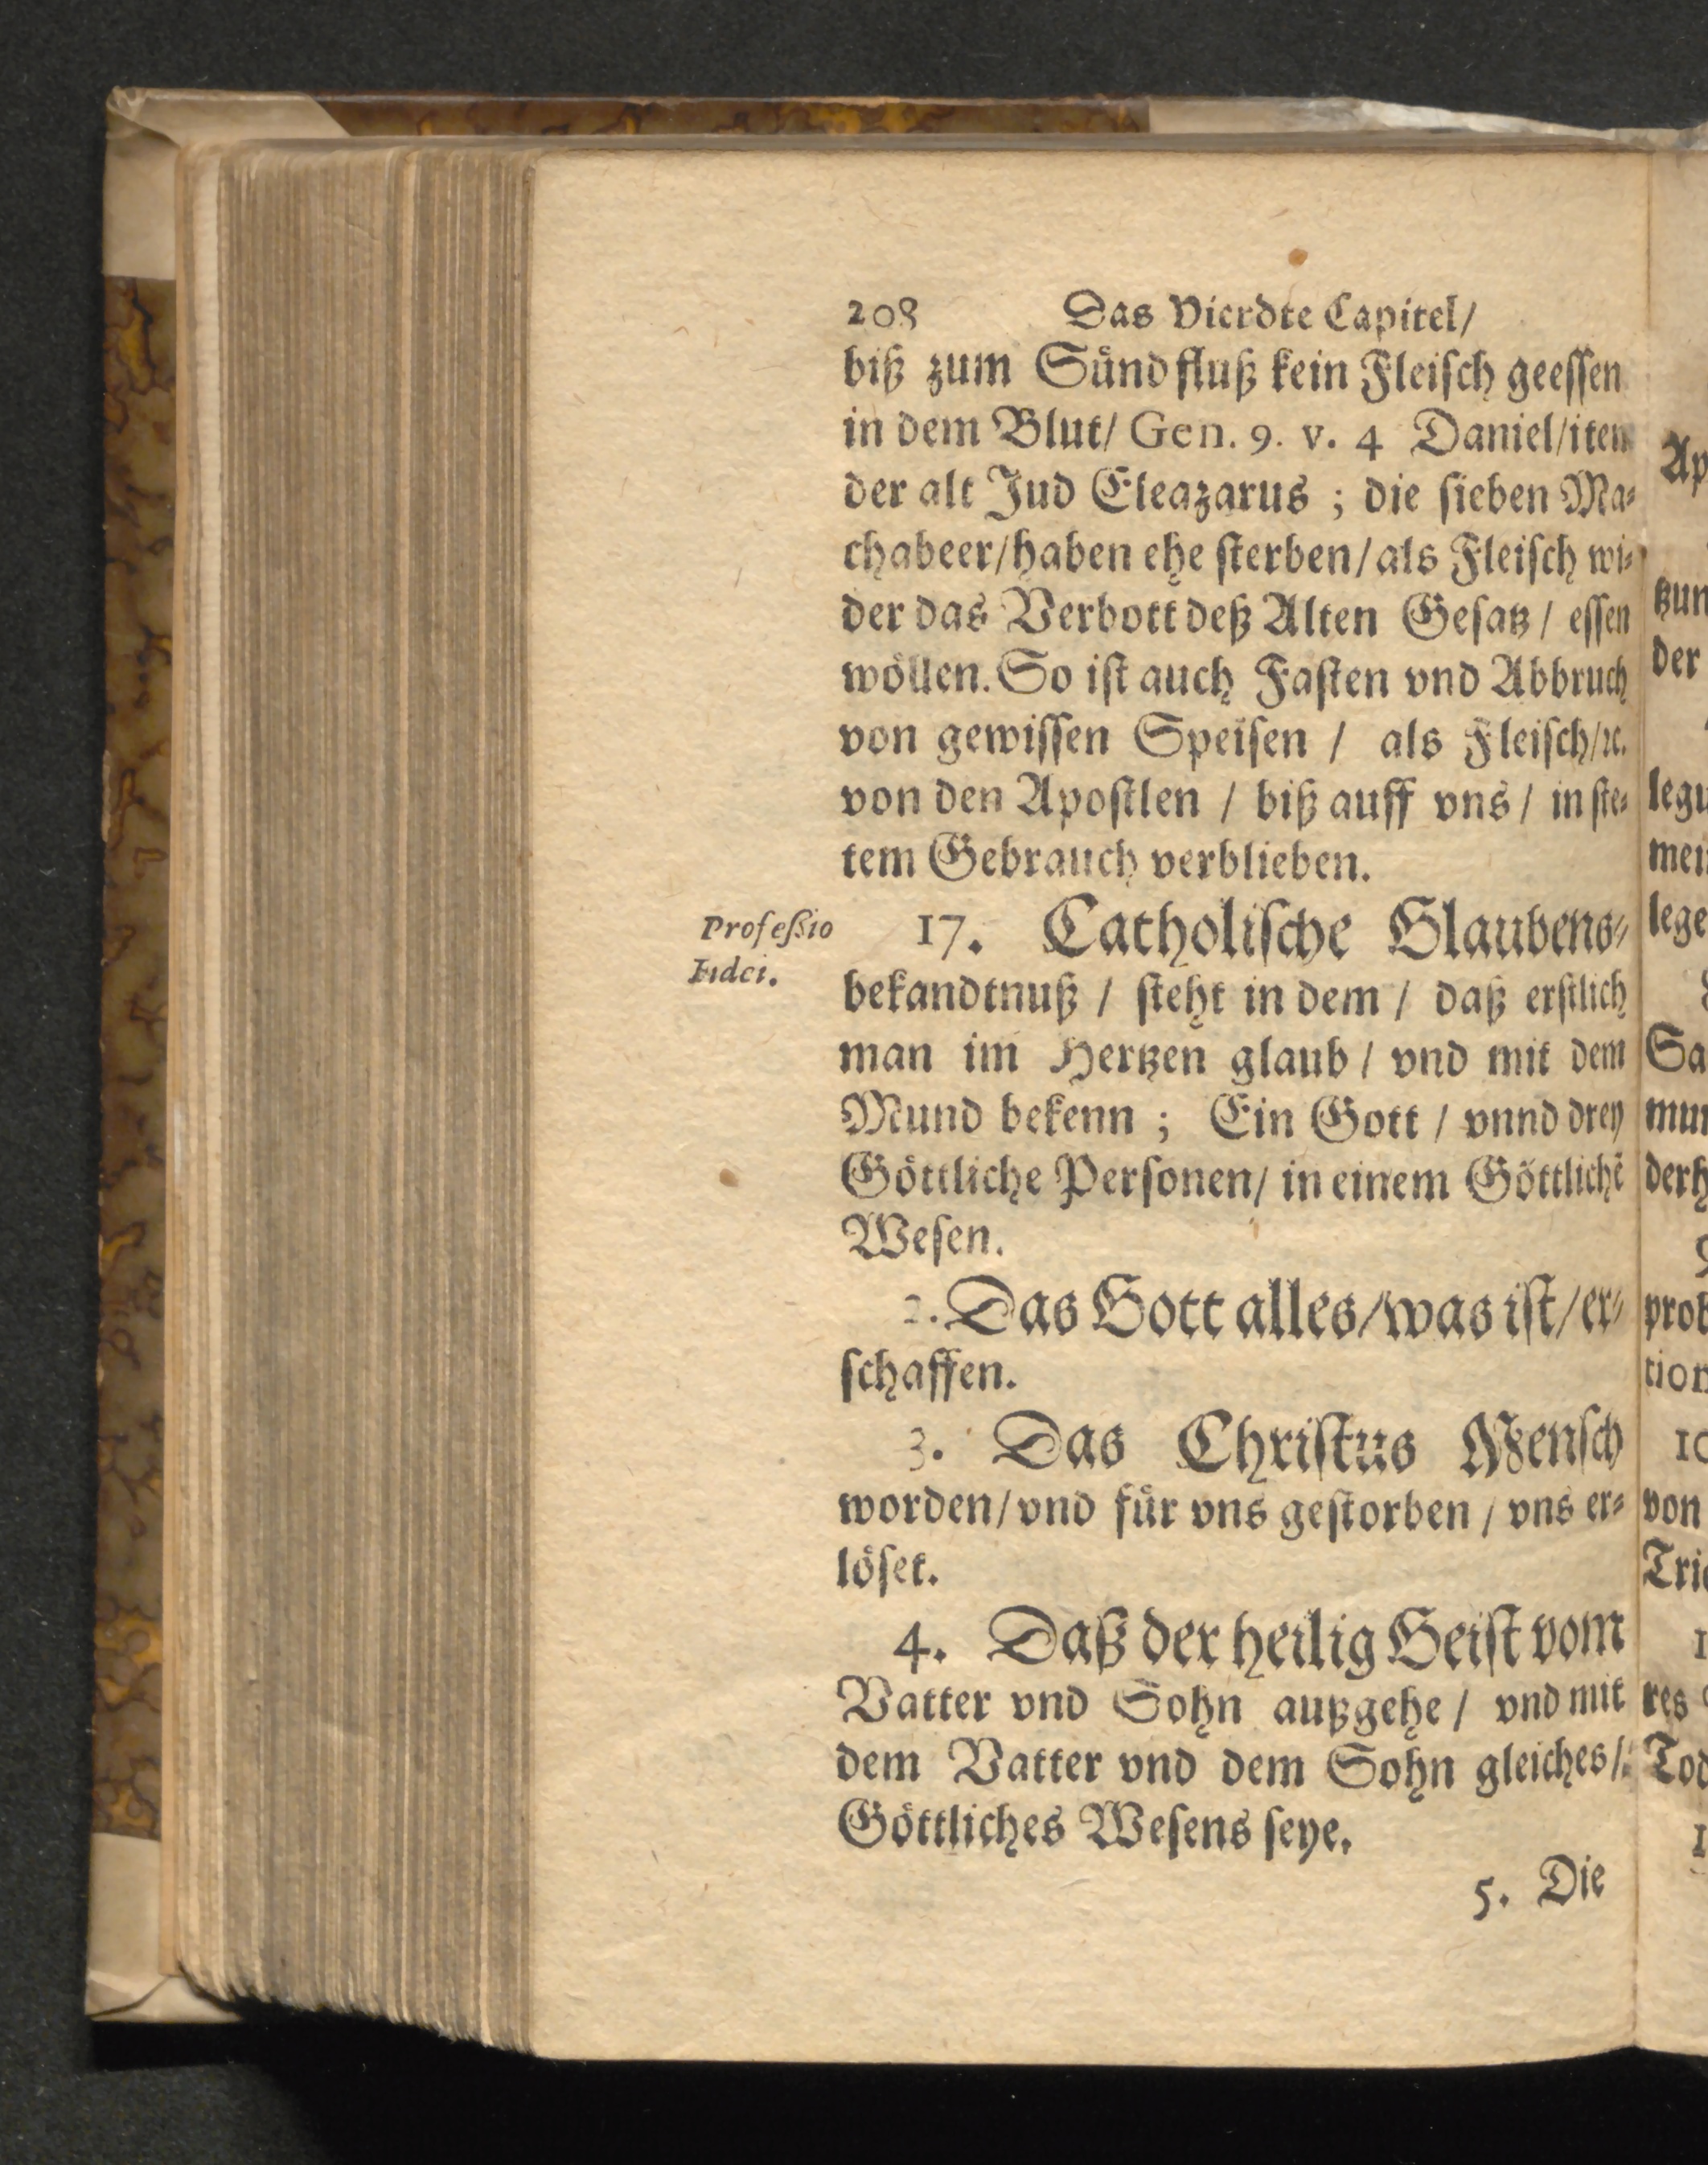 208 Das Vierdte Capitel/
biß zum Sündfluß kein Fleisch geessen
in dem Blut/ Gen. 9. v. 4 Daniel/item
der alt Jud Eleazarus ; die sieben Ma-
chabeer/haben ehe sterben/als Fleisch wi-
der das Verbott deß Alten Gesatz / essen
wöllen. So ist auch Fasten vnd Abbruch
von gewissen Speisen / als Fleisch/ꝛc.
von den Apostlen / biß auff vns / in ste-
tem Gebrauch verblieben.
Profeßio
Fidei.
17. Catholische Glaubens-
bekandtnuß / steht in dem / daß erstlich
man im Hertzen glaub / vnd mit dem
Mund bekenn ; Ein Gott / vnnd drey
Göttliche Personen/ in einem Göttlichē
Wesen.
2. Das Gott alles/was ist/er-
schaffen.
3. Das Christus Mensch
worden/vnd für vns gestorben / vns er-
löset.
4. Daß der heilig Geist vom
Vatter vnd Sohn außgehe / vnd mit
dem Vatter vnd dem Sohn gleiches/
Göttliches Wesens seye.
5. Die